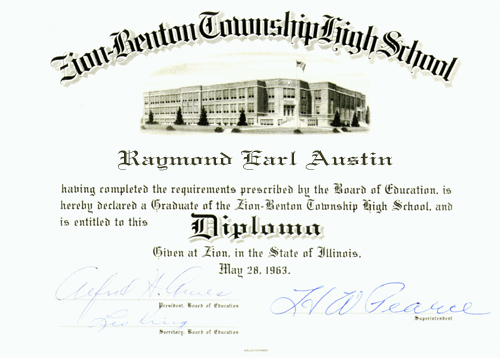 Zion-Benton Township High School
Raymond Earl Austin
having completed the requirements prescribed by the Board of Education, is
hereby declared a Graduate of the Zion-Benton Township High School, and
is entitled to this Diploma
Given at Zion, in the State of Illinois,
May 28, 1963.
Alfred H. Ames
President, Board of Education
H W Pearce
Superintendent
Secretary, Board of Education